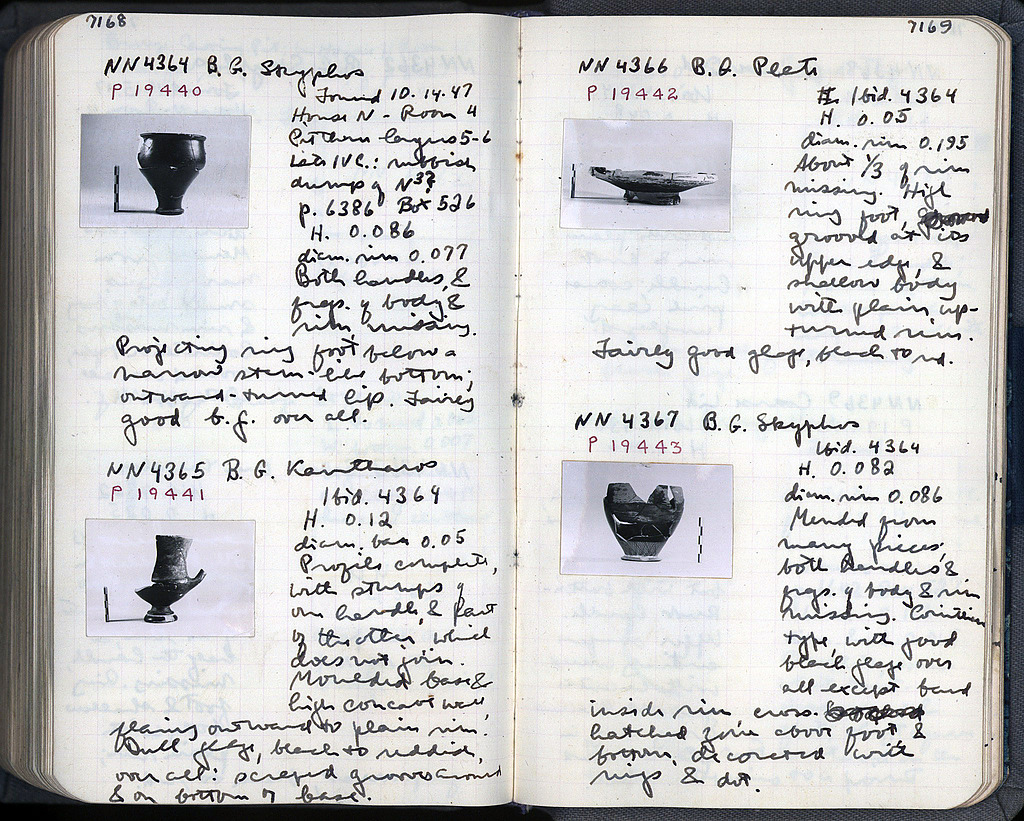 7168
NN4364 B.G. Skyphos
P 19440
Found 10.14.47
House N - Room 4
Cistern - layers 5-6
Late IV C.: rubbish
dump of
p. 6386 Box 526
H. 0.086
diam. rim 0.077
Both handles, &
frags. of body &
rim, missing.
Projecting ring foot below a
narrow stem-like bottom;
outward-turned lip. Fairly
good b.g. over all.
NN4365 B.G. Kantharos
P 19441
Ibid. 4364
H. 0.12
diam. base 0.05
Profile complete,
with stumps of
one handle, & part
of the other, which
does not join.
Moulded base &
high concave wall,
flaring outward to plain rim.
Dull glaze, black to reddish,
over all: scraped grooves around
& on bottom of base.
7169
NN4366 B.G. Plate
P 19442
Ibid. 4364
H. 0.05
diam. rim 0.195
About 1/3 of rim
missing. High
ring foot,
grooved at its
upper edge, &
shallow body
with plain, up-
turned rim.
Fairly good glaze, black to rd.
NN4367 B.G. Skyphos
P 19443
Ibid. 4364
H. 0.082
diam. rim 0.086
Mended from
many pieces;
both handles &
frags. of body & rim
missing. Corinthian
type, with good
black glaze over
all except band
inside rim, cross-
hatched zone above foot, &
bottom, decorated with
rings & dot.